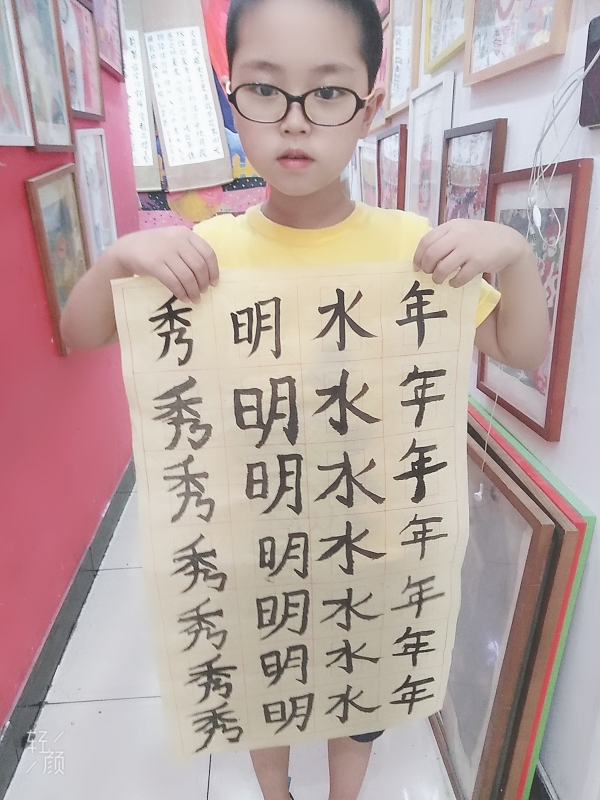 年年年年年年年
水水水水水水水
明明明明明明明
秀秀秀秀秀秀秀
轻颜